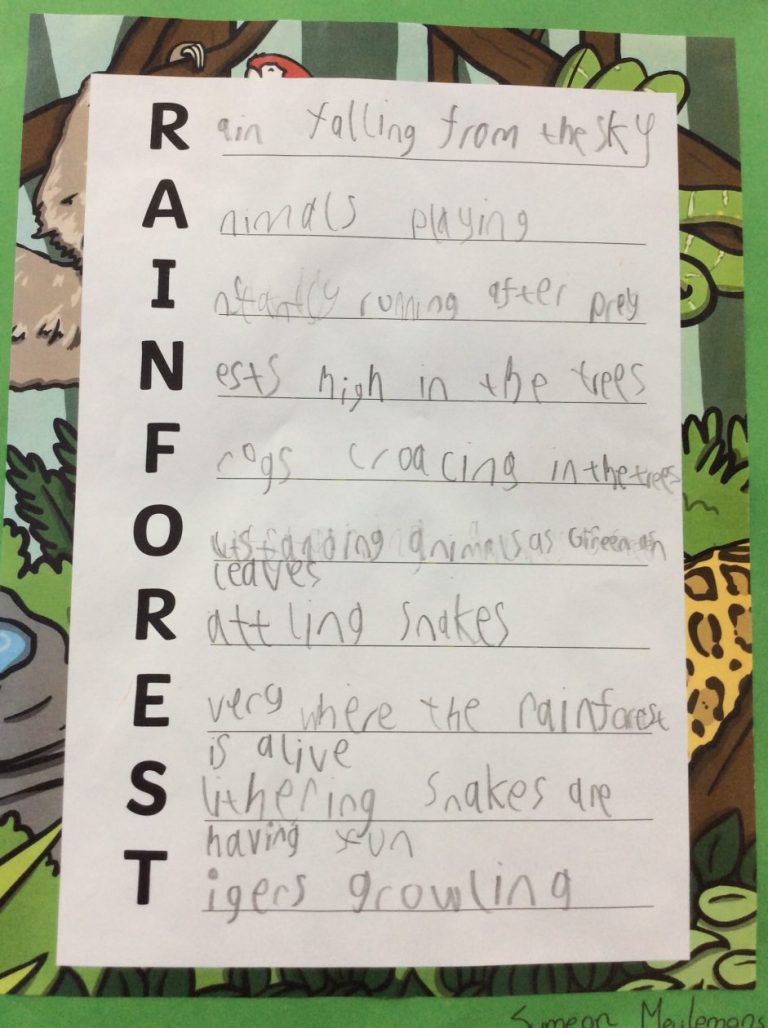 Rain falling from the sky
Animals playing
Instantly running after prey
Nests high in the trees
Frogs croacing in the trees
Outstanding animals as Green as
leaves
Rattling snakes
Every where the rainforest
is alive
Slithering snakes are
having fun
Tigers growling
Symeon Meulemans